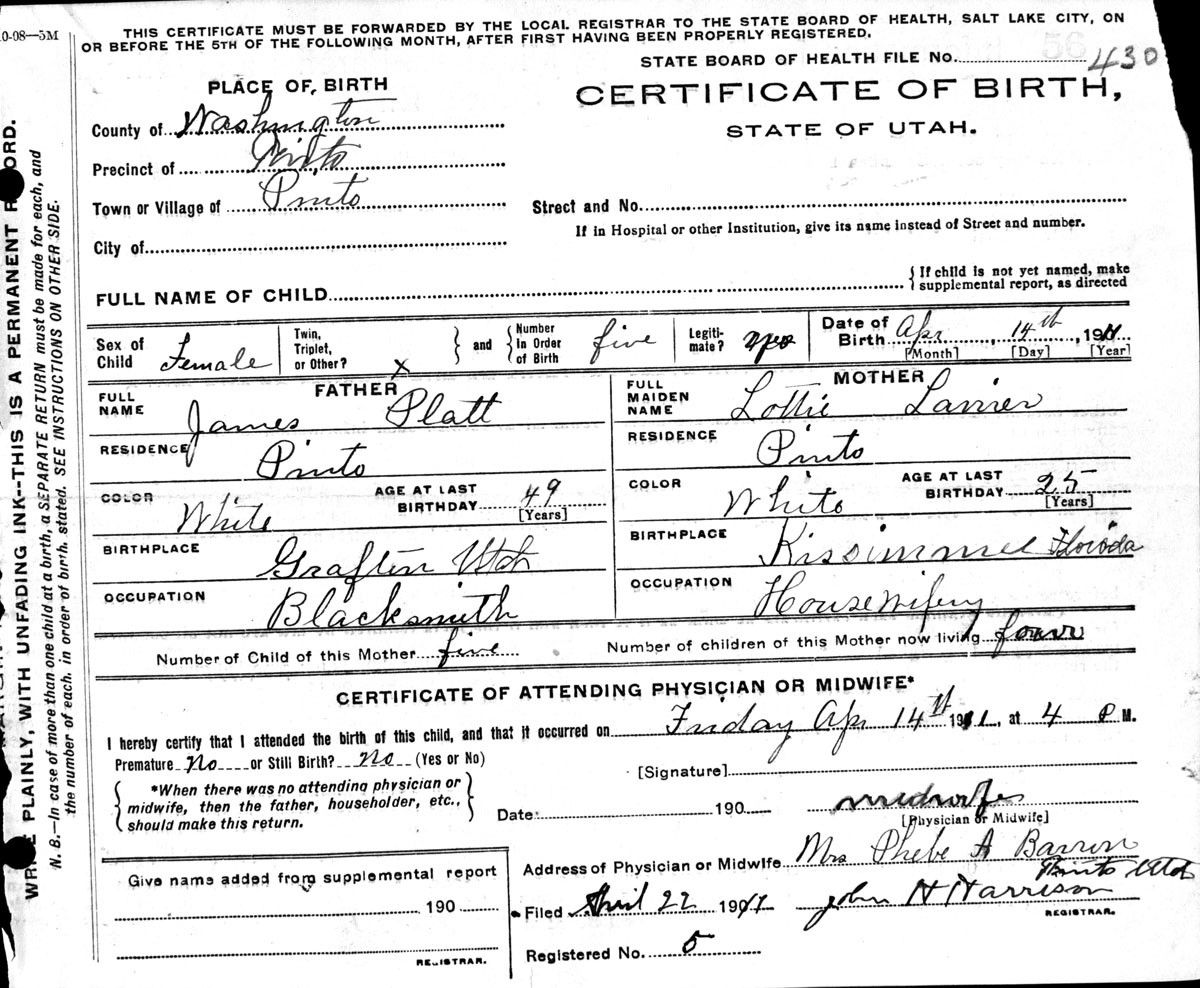 0-08—5M
THIS CERTIFICATE MUST BE FORWARDED BY THE LOCAL REGISTRAR TO THE STATE BOARD OF HEALTH, SALT LAKE CITY, ON
OR BEFORE THE 5TH OF THE FOLLOWING MONTH, AFTER FIRST HAVING BEEN PROPERLY REGISTERED.
56
STATE BOARD OF HEALTH FILE No. 430
CERTIFICATE OF BIRTH,
STATE OF UTAH.
PLACE OF BIRTH
County of Washington
Precinct of Pinto
Town or Village of Pinto
City of
Street and No.
If in Hospital or other Institution, give its name instead of Street and number.
FULL NAME OF CHILD
{ If child is not yet named, make
supplemental report, as directed
Sex of Child Female
Twin, Triplet, or Other? X } and { Number in Order of Birth five
Legitimate? yes
Date of Birth Apr 14th, 1911
[Month] [Day] [Year]
FATHER
FULL NAME James Platt
RESIDENCE Pinto
COLOR White
AGE AT LAST BIRTHDAY 49
[Years]
BIRTHPLACE Grafton Utah
OCCUPATION Blacksmith
MOTHER
FULL MAIDEN NAME Lottie Lanier
RESIDENCE Pinto
COLOR White
AGE AT LAST BIRTHDAY 25
[Years]
BIRTHPLACE Kissimmee Florida
OCCUPATION Housewifery
Number of Child of this Mother five
Number of children of this Mother now living four
CERTIFICATE OF ATTENDING PHYSICIAN OR MIDWIFE*
I hereby certify that I attended the birth of this child, and that it occurred on Friday Apr 14th 1911, at 4 P M.
Premature No or Still Birth? No (Yes or No)
[Signature]
{ *When there was no attending physician or
midwife, then the father, householder, etc.,
should make this return. }
Date 190 midwife
[Physician or Midwife]
Address of Physician or Midwife Mrs Phebe A Barron
Pinto Utah
Filed April 22 1911 John H Harrison
REGISTRAR.
Registered No. 5
Give name added from supplemental report
190
REGISTRAR.
WRITE PLAINLY, WITH UNFADING INK--THIS IS A PERMANENT RECORD.
N. B.—In case of more than one child at a birth, a SEPARATE RETURN must be made for each, and
the number of each, in order of birth, stated. SEE INSTRUCTIONS ON OTHER SIDE.